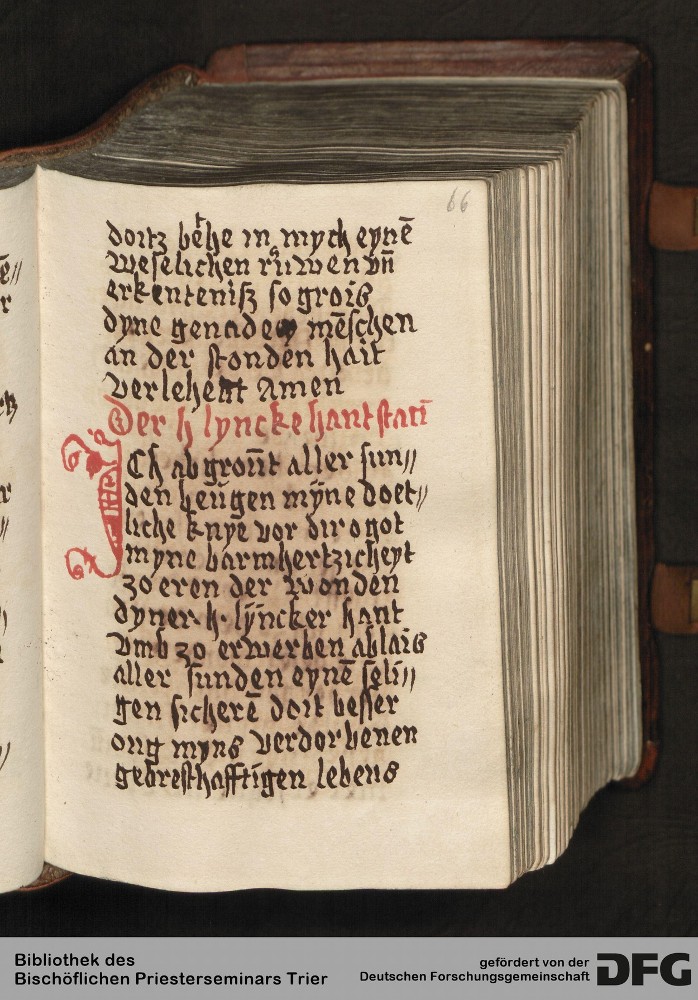 66
doitz behe in myck eynē
weselichen ruwen vn̄
erkentenisz so grois
dyne genade mēschen
an der stonden hait
verlehent Amen
Der h lyncke hant stacī
ICh abgrōnt aller sun//
den beugen mÿne doet//
liche knÿe vor dir o got
myne barmhertzicheyt
zo eren der wonden
dyner .h. lÿncker hant
vmb zo erwerben ablais
aller sunden eynē seli//
gen sicherē doit besser
ong myns verdorbenen
gebresthafftigen lebens
Bibliothek des
Bischöflichen Priesterseminars Trier
gefördert von der
Deutschen Forschungsgemeinschaft
DFG